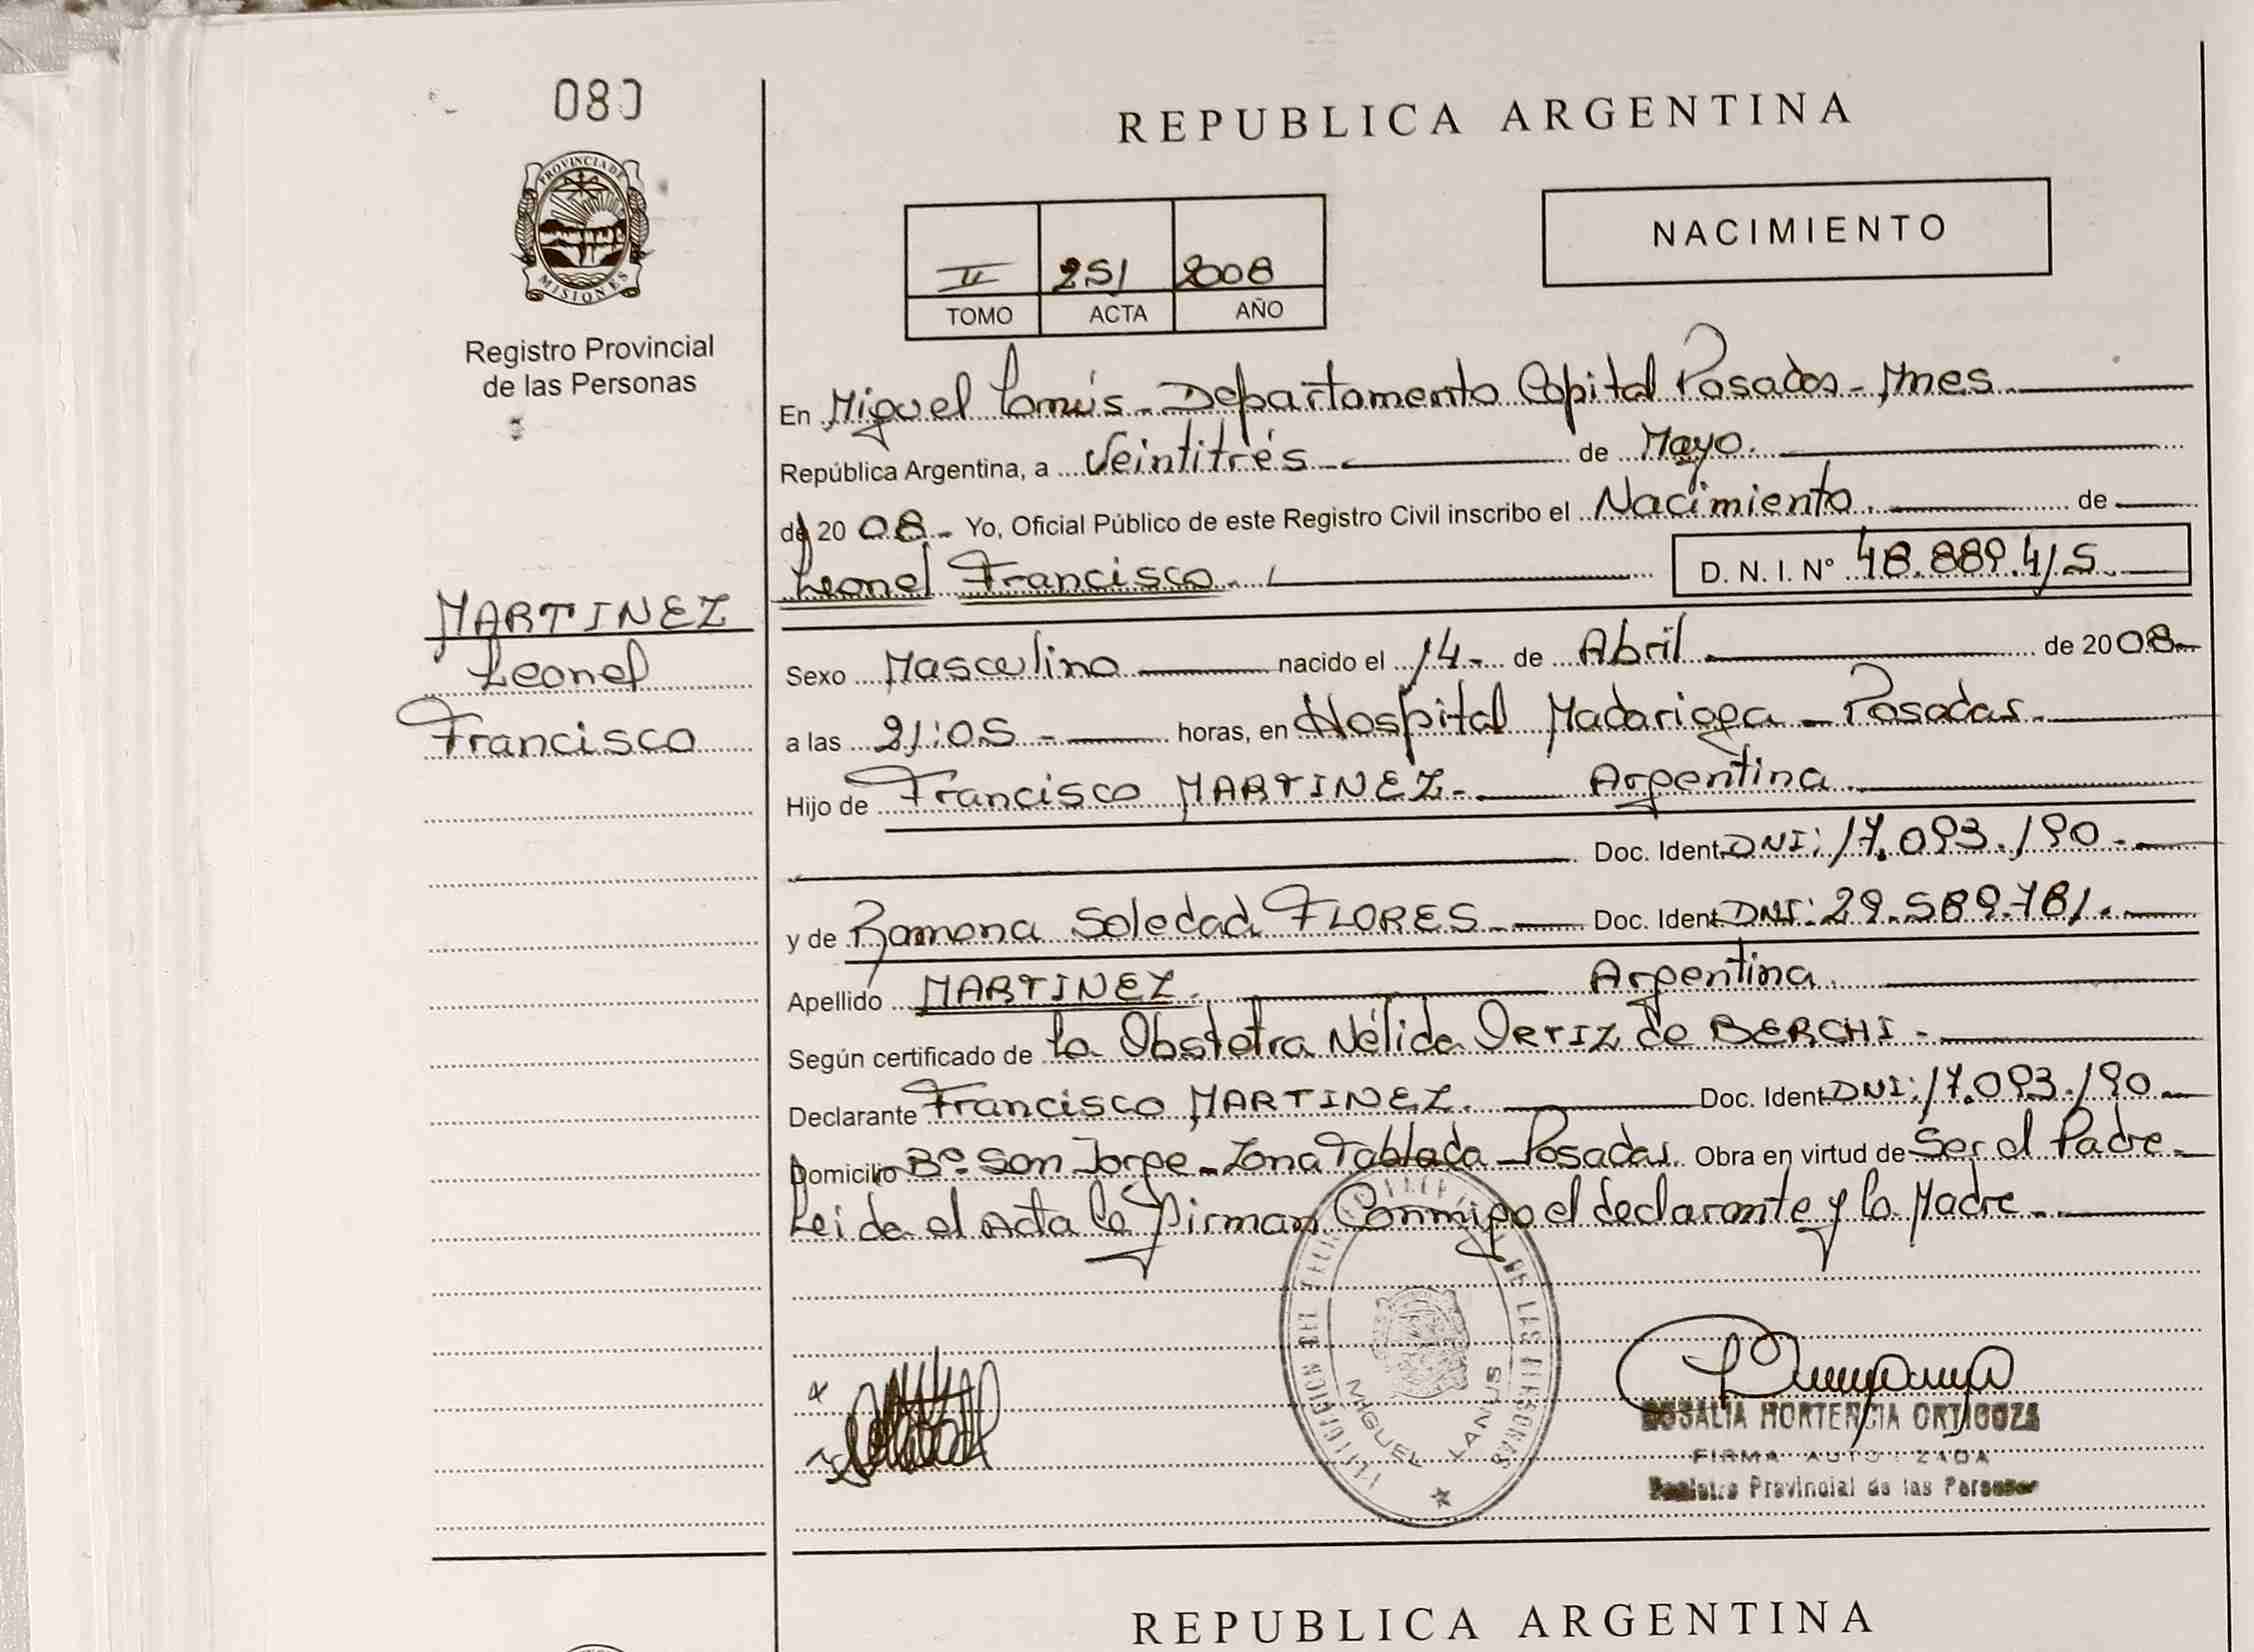 080
PROVINCIA DE
MISIONES
Registro Provincial
de las Personas
MARTINEZ
Leonel
Francisco
REPUBLICA ARGENTINA
II 251 2008
TOMO ACTA AÑO
NACIMIENTO
En Miguel Lanús - Departamento Capital Posadas - Mnes
República Argentina, a Veintitrés - de Mayo.
de 2008 - Yo, Oficial Público de este Registro Civil inscribo el Nacimiento. de
Leonel Francisco - D. N. I. Nº 48.889.415.
Sexo Masculino nacido el 14 - de Abril de 2008
a las 21:05 - horas, en Hospital Madariaga - Posadas.
Hijo de Francisco MARTINEZ - Argentina.
Doc. Ident. DNI: 17.093.190.
y de Ramona Soledad FLORES - Doc. Ident. DNI: 29.589.781.
Apellido MARTINEZ. Argentina.
Según certificado de la Obstetra Nélida ORTIZ de BERCHI -
Declarante Francisco MARTINEZ. Doc. Ident. DNI: 17.093.190
Domicilio Bº San Jorge - Zona Tablada - Posadas. Obra en virtud de Ser el Padre -
Leida el Acta la firman Conmigo el declarante y la Madre -
DE LAS PERSONAS
MIGUEL LANUS
ROSALIA HORTENCIA ORTIGOZA
FIRMA AUTORIZADA
Registro Provincial de las Personas
REPUBLICA ARGENTINA